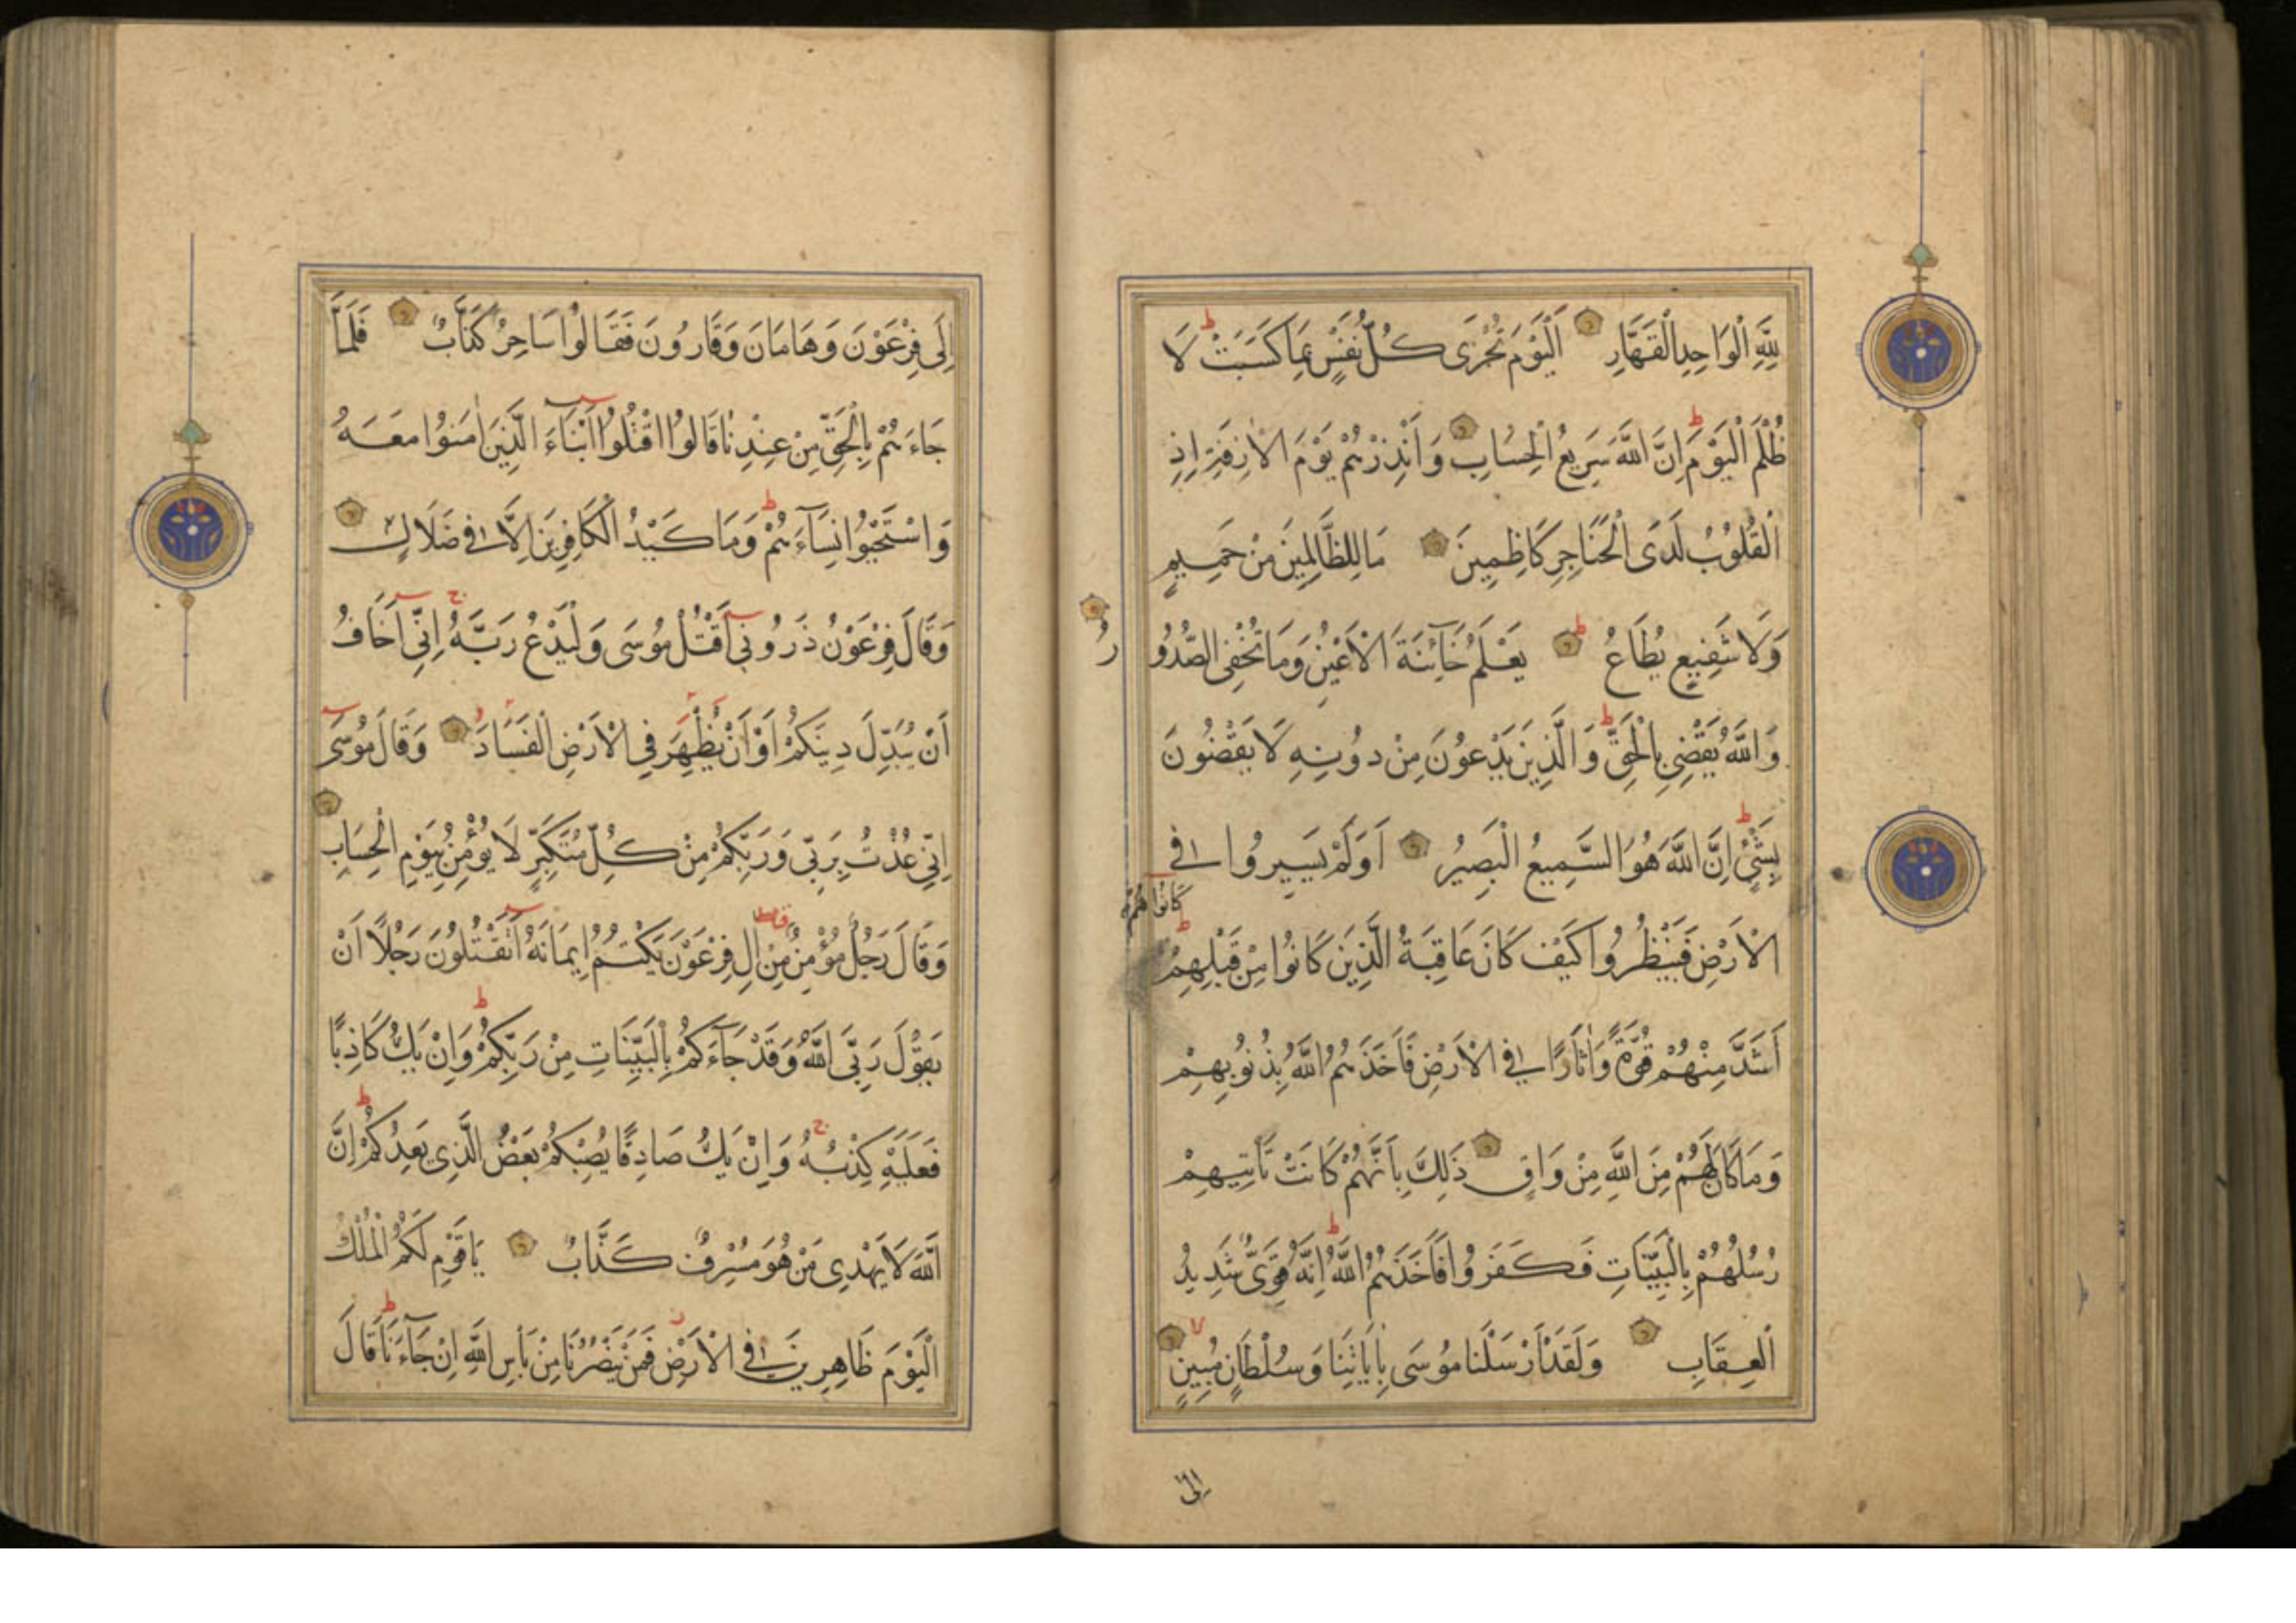 لِلَّهِ الْوَاحِدِ الْقَهَّارِ اَلْيَوْمَ تُجْزَى كُلُّ نَفْسٍ بِمَا كَسَبَتْ لَا
ظُلْمَ الْيَوْمَ اِنَّ اللَّهَ سَرِيعُ الْحِسَابِ وَاَنْذِرْهُمْ يَوْمَ الْاٰزِفَةِ اِذِ
الْقُلُوبُ لَدَى الْحَنَاجِرِ كَاظِمِينَ مَا لِلظَّالِمِينَ مِنْ حَمِيمٍ
وَلَا شَفِيعٍ يُطَاعُ يَعْلَمُ خَآئِنَةَ الْاَعْيُنِ وَمَا تُخْفِى الصُّدُورُ
وَاللَّهُ يَقْضِى بِالْحَقِّ وَالَّذِينَ يَدْعُونَ مِنْ دُونِهِ لَا يَقْضُونَ
بِشَيْءٍ اِنَّ اللَّهَ هُوَ السَّمِيعُ الْبَصِيرُ اَوَلَمْ يَسِيرُوا فِى
الْاَرْضِ فَيَنْظُرُوا كَيْفَ كَانَ عَاقِبَةُ الَّذِينَ كَانُوا مِنْ قَبْلِهِمْ
كَانُوا هُمْ
اَشَدَّ مِنْهُمْ قُوَّةً وَاٰثَارًا فِى الْاَرْضِ فَاَخَذَهُمُ اللَّهُ بِذُنُوبِهِمْ
وَمَا كَانَ لَهُمْ مِنَ اللَّهِ مِنْ وَاقٍ ذَلِكَ بِاَنَّهُمْ كَانَتْ تَاْتِيهِمْ
رُسُلُهُمْ بِالْبَيِّنَاتِ فَكَفَرُوا فَاَخَذَهُمُ اللَّهُ اِنَّهُ قَوِىٌّ شَدِيدُ
الْعِقَابِ وَلَقَدْ اَرْسَلْنَا مُوسَى بِاٰيَاتِنَا وَسُلْطَانٍ مُبِينٍ
اِلَى
اِلَى فِرْعَوْنَ وَهَامَانَ وَقَارُونَ فَقَالُوا سَاحِرٌ كَذَّابٌ فَلَمَّا
جَاءَهُمْ بِالْحَقِّ مِنْ عِنْدِنَا قَالُوا اقْتُلُوا اَبْنَاءَ الَّذِينَ اٰمَنُوا مَعَهُ
وَاسْتَحْيُوا نِسَآءَهُمْ وَمَا كَيْدُ الْكَافِرِينَ اِلَّا فِى ضَلَالٍ
وَقَالَ فِرْعَوْنُ ذَرُونِى اَقْتُلْ مُوسَى وَلْيَدْعُ رَبَّهُ اِنِّى اَخَافُ
اَنْ يُبَدِّلَ دِينَكُمْ اَوْ اَنْ يُظْهِرَ فِى الْاَرْضِ الْفَسَادَ وَقَالَ مُوسَى
اِنِّى عُذْتُ بِرَبِّى وَرَبِّكُمْ مِنْ كُلِّ مُتَكَبِّرٍ لَا يُؤْمِنُ بِيَوْمِ الْحِسَابِ
وَقَالَ رَجُلٌ مُؤْمِنٌ مِنْ اٰلِ فِرْعَوْنَ يَكْتُمُ اِيمَانَهُ اَتَقْتُلُونَ رَجُلًا اَنْ
يَقُولَ رَبِّىَ اللَّهُ وَقَدْ جَآءَكُمْ بِالْبَيِّنَاتِ مِنْ رَبِّكُمْ وَاِنْ يَكُ كَاذِبًا
فَعَلَيْهِ كِذْبُهُ وَاِنْ يَكُ صَادِقًا يُصِبْكُمْ بَعْضُ الَّذِى يَعِدُكُمْ اِنَّ
اللَّهَ لَا يَهْدِى مَنْ هُوَ مُسْرِفٌ كَذَّابٌ يَاقَوْمِ لَكُمُ الْمُلْكُ
الْيَوْمَ ظَاهِرِينَ فِى الْاَرْضِ فَمَنْ يَنْصُرُنَا مِنْ بَاْسِ اللَّهِ اِنْ جَآءَنَا قَالَ